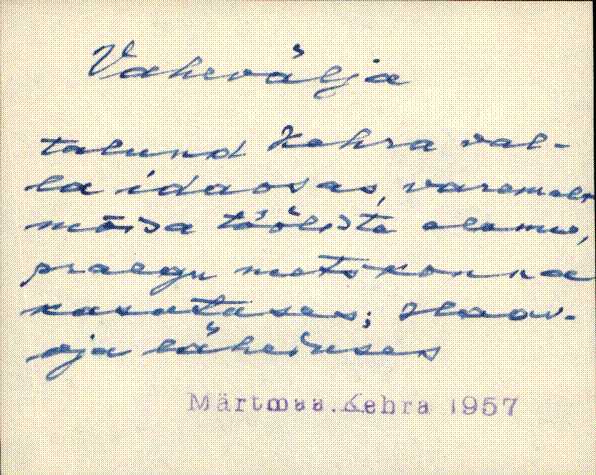 Vahevälja
talund Kehra val-
la idaosas, varemalt
mõisa tööliste elamu,
praegu metskonna
kasutuses; Haav-
oja läheduses
Märtmaa.Kehra 1957